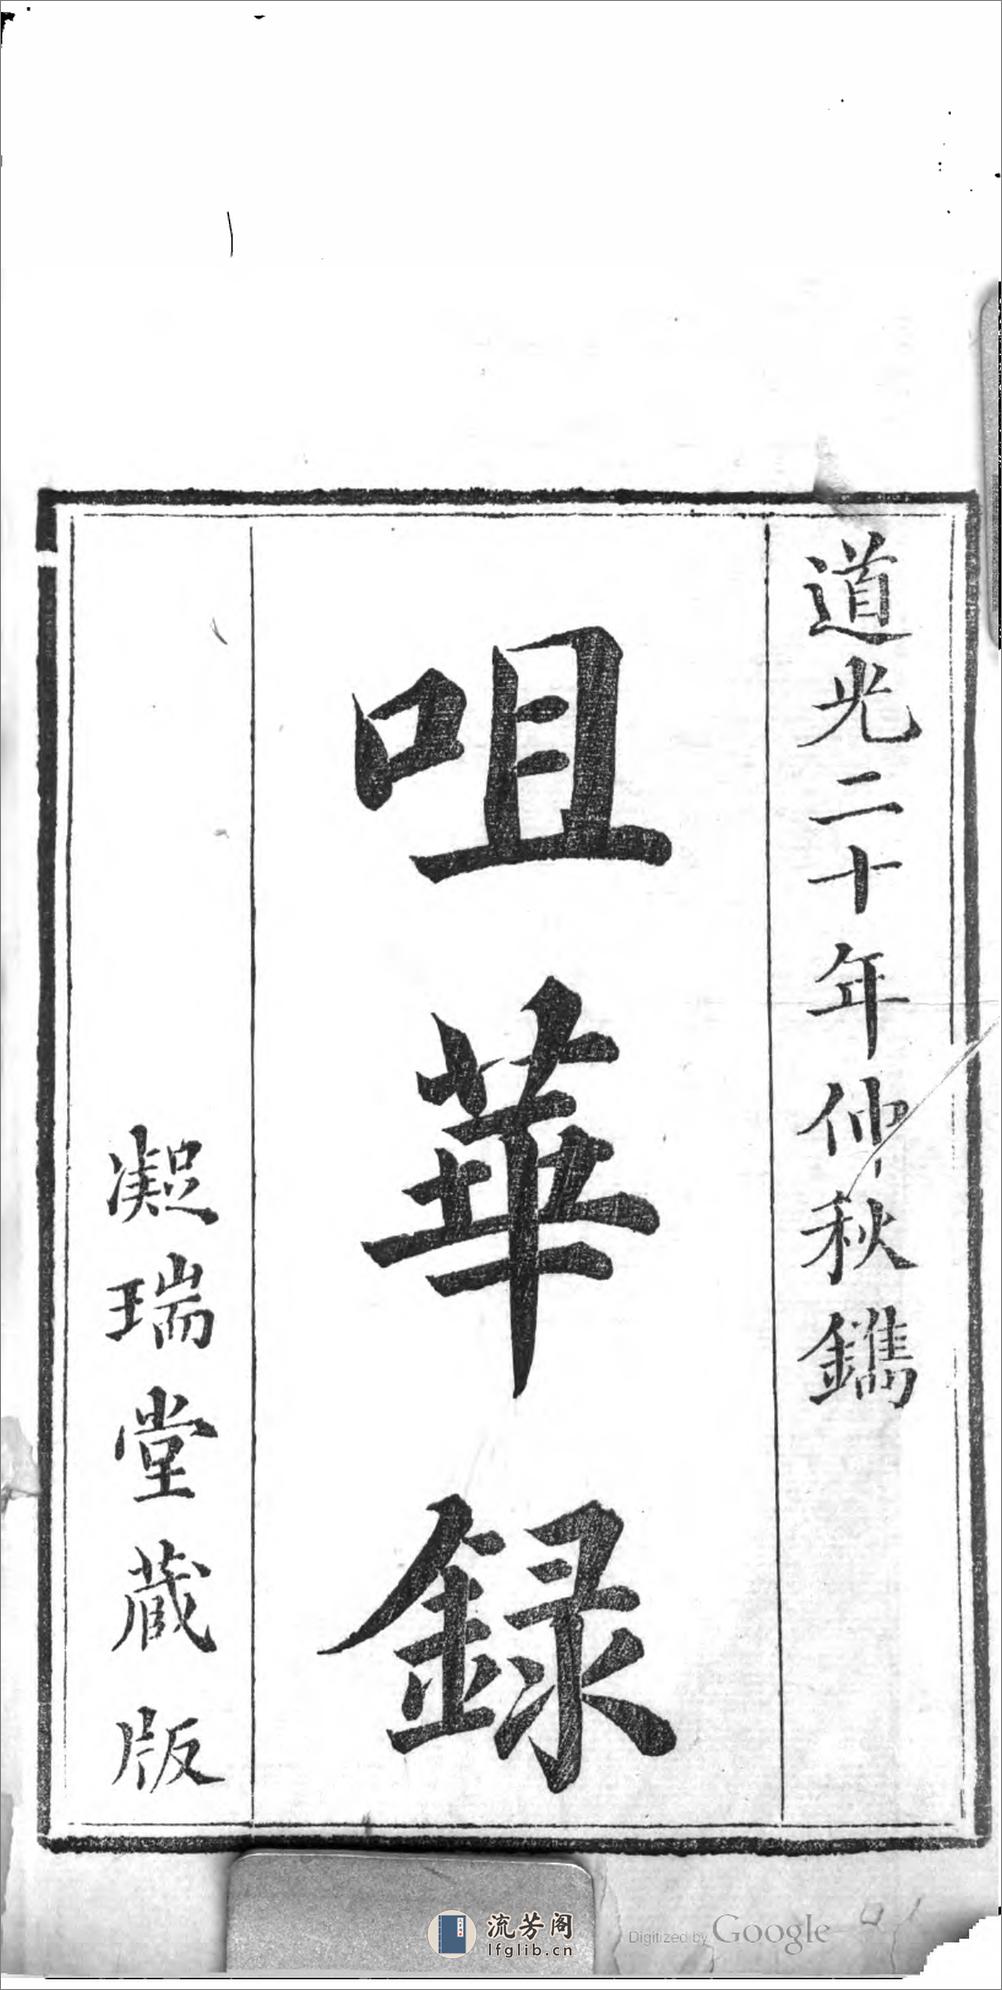 道光二十年仲秋鐫
咀華録
凝瑞堂蔵版
流芳阁
lfglib.cn
Digitized by Google